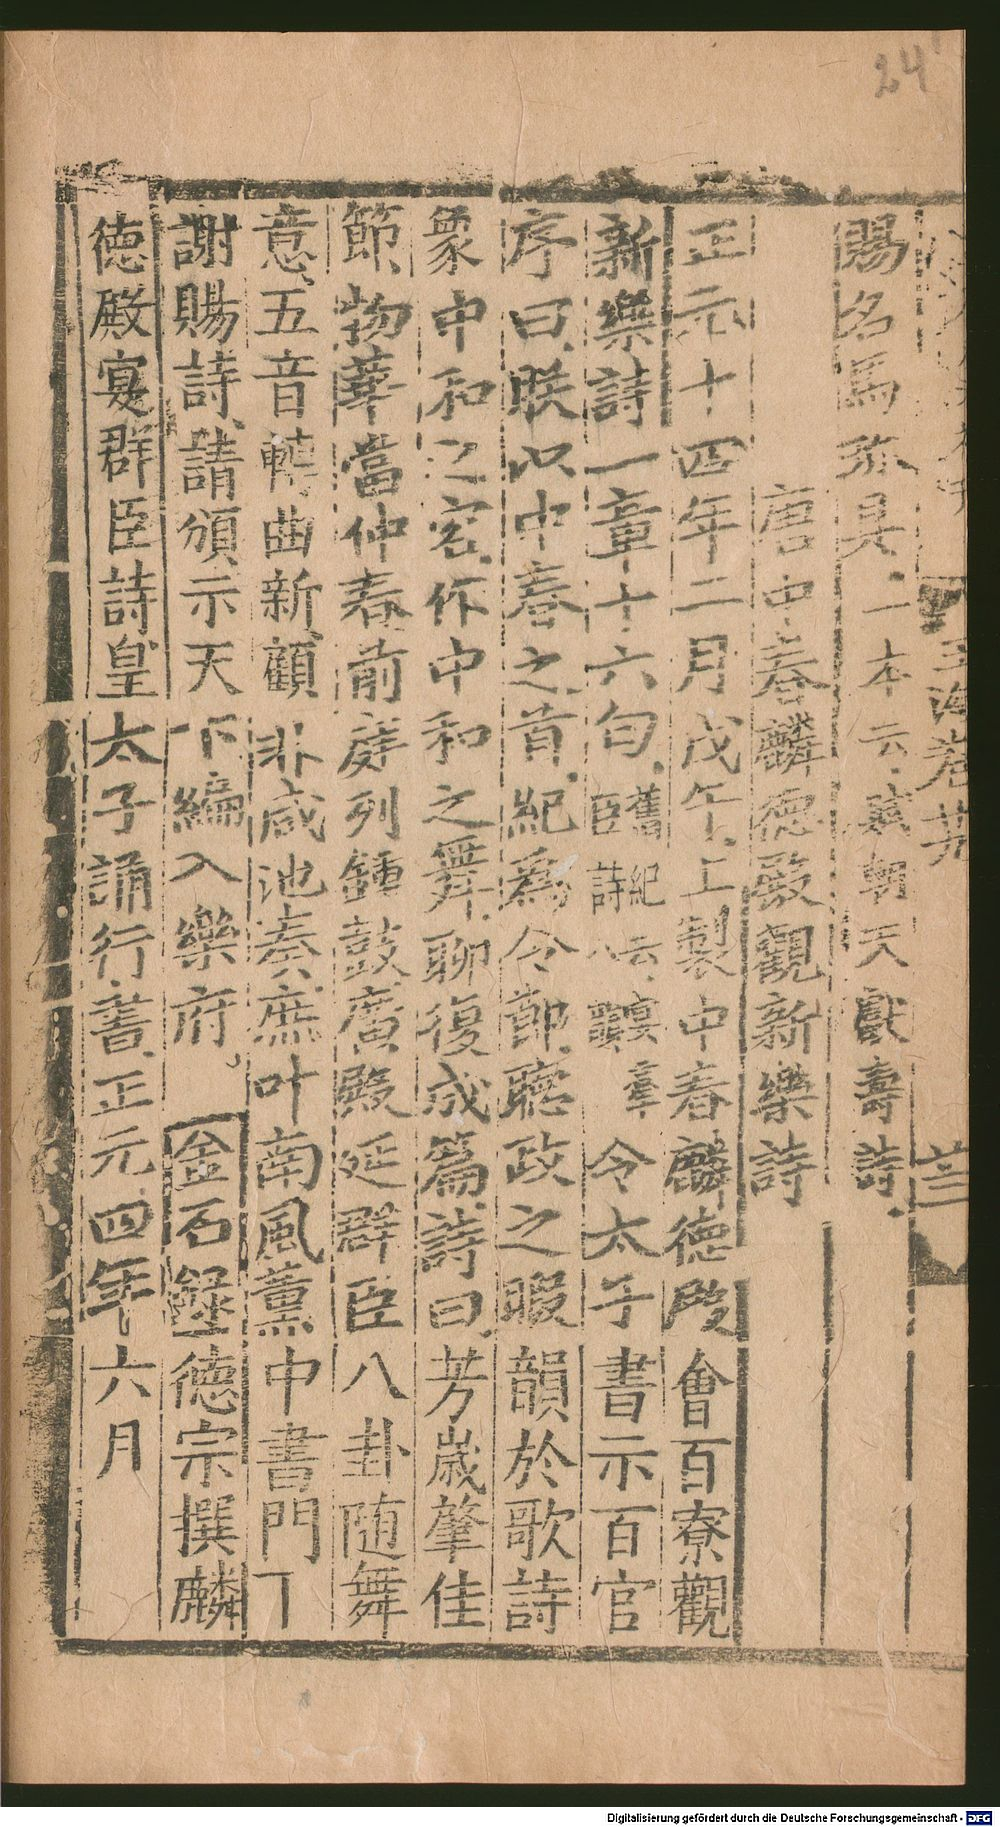 24
玉海卷廿九
廿三
賜名爲 具一本云 朝天獻壽詩
唐中春麟德殿觀新樂詩
正元十四年二月戊午上製中春麟德殿會百寮觀
新樂詩一章十六句舊紀云 羣臣詩八韻令太子書示百官
序曰朕以中春之首紀爲令節聽政之暇韻於歌詩
象中和之容作中和之舞聊復成篇詩曰芳歲肇佳
節物華當仲春前庭列鍾鼓廣殿延群臣八卦随舞
意五音轉曲新顧非咸池奏庶叶南風薰中書門丅
謝賜詩請頒示天下編入樂府金石録德宗撰麟
德殿宴群臣詩皇太子誦行書正元四年六月
Digitalisierung gefördert durch die Deutsche Forschungsgemeinschaft - DFG